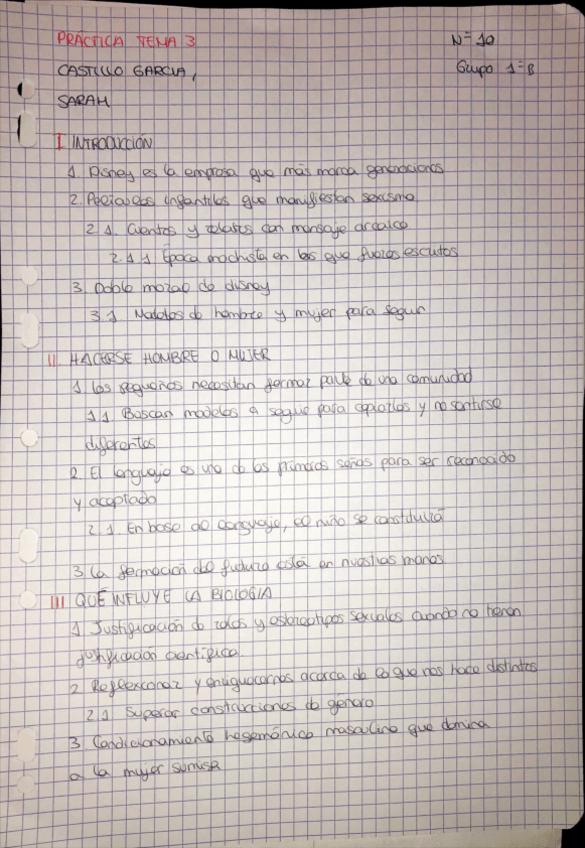 PRÁCTICA TEMA 3
Nº 10
CASTILLO GARCIA,
Grupo 1ºB
SARAH
I INTRODUCCIÓN
1. Disney es la empresa que más marca generaciones
2. Películas infantiles que manifiestan sexismo
2.1. Cuentos y relatos con mensaje arcaico
2.1.1 Época machista en los que fueros escritos
3. Doble moral de disney
3.1. Modelos de hombre y mujer para seguir
II. HACERSE HOMBRE O MUJER
1 los pequeños necesitan formar parte de una comunidad
1.1 Buscan modelos a seguir para copiarlos y no sentirse
diferentes
2. El lenguaje es una de las primeras señas para ser reconocido
y aceptado
2.1. En base al lenguaje, el niño se constituirá
3. La formación del futuro está en nuestras manos
III QUÉ INFLUYE LA BIOLOGIA
1 Justificación de roles y estereotipos sexuales cuando no tienen
justificación científica.
2 Reflexionar y acerca de lo que nos hace distintos
2.1 Superar construcciones de género
3 Condicionamiento hegemónico masculino que domina
a la mujer sumisa